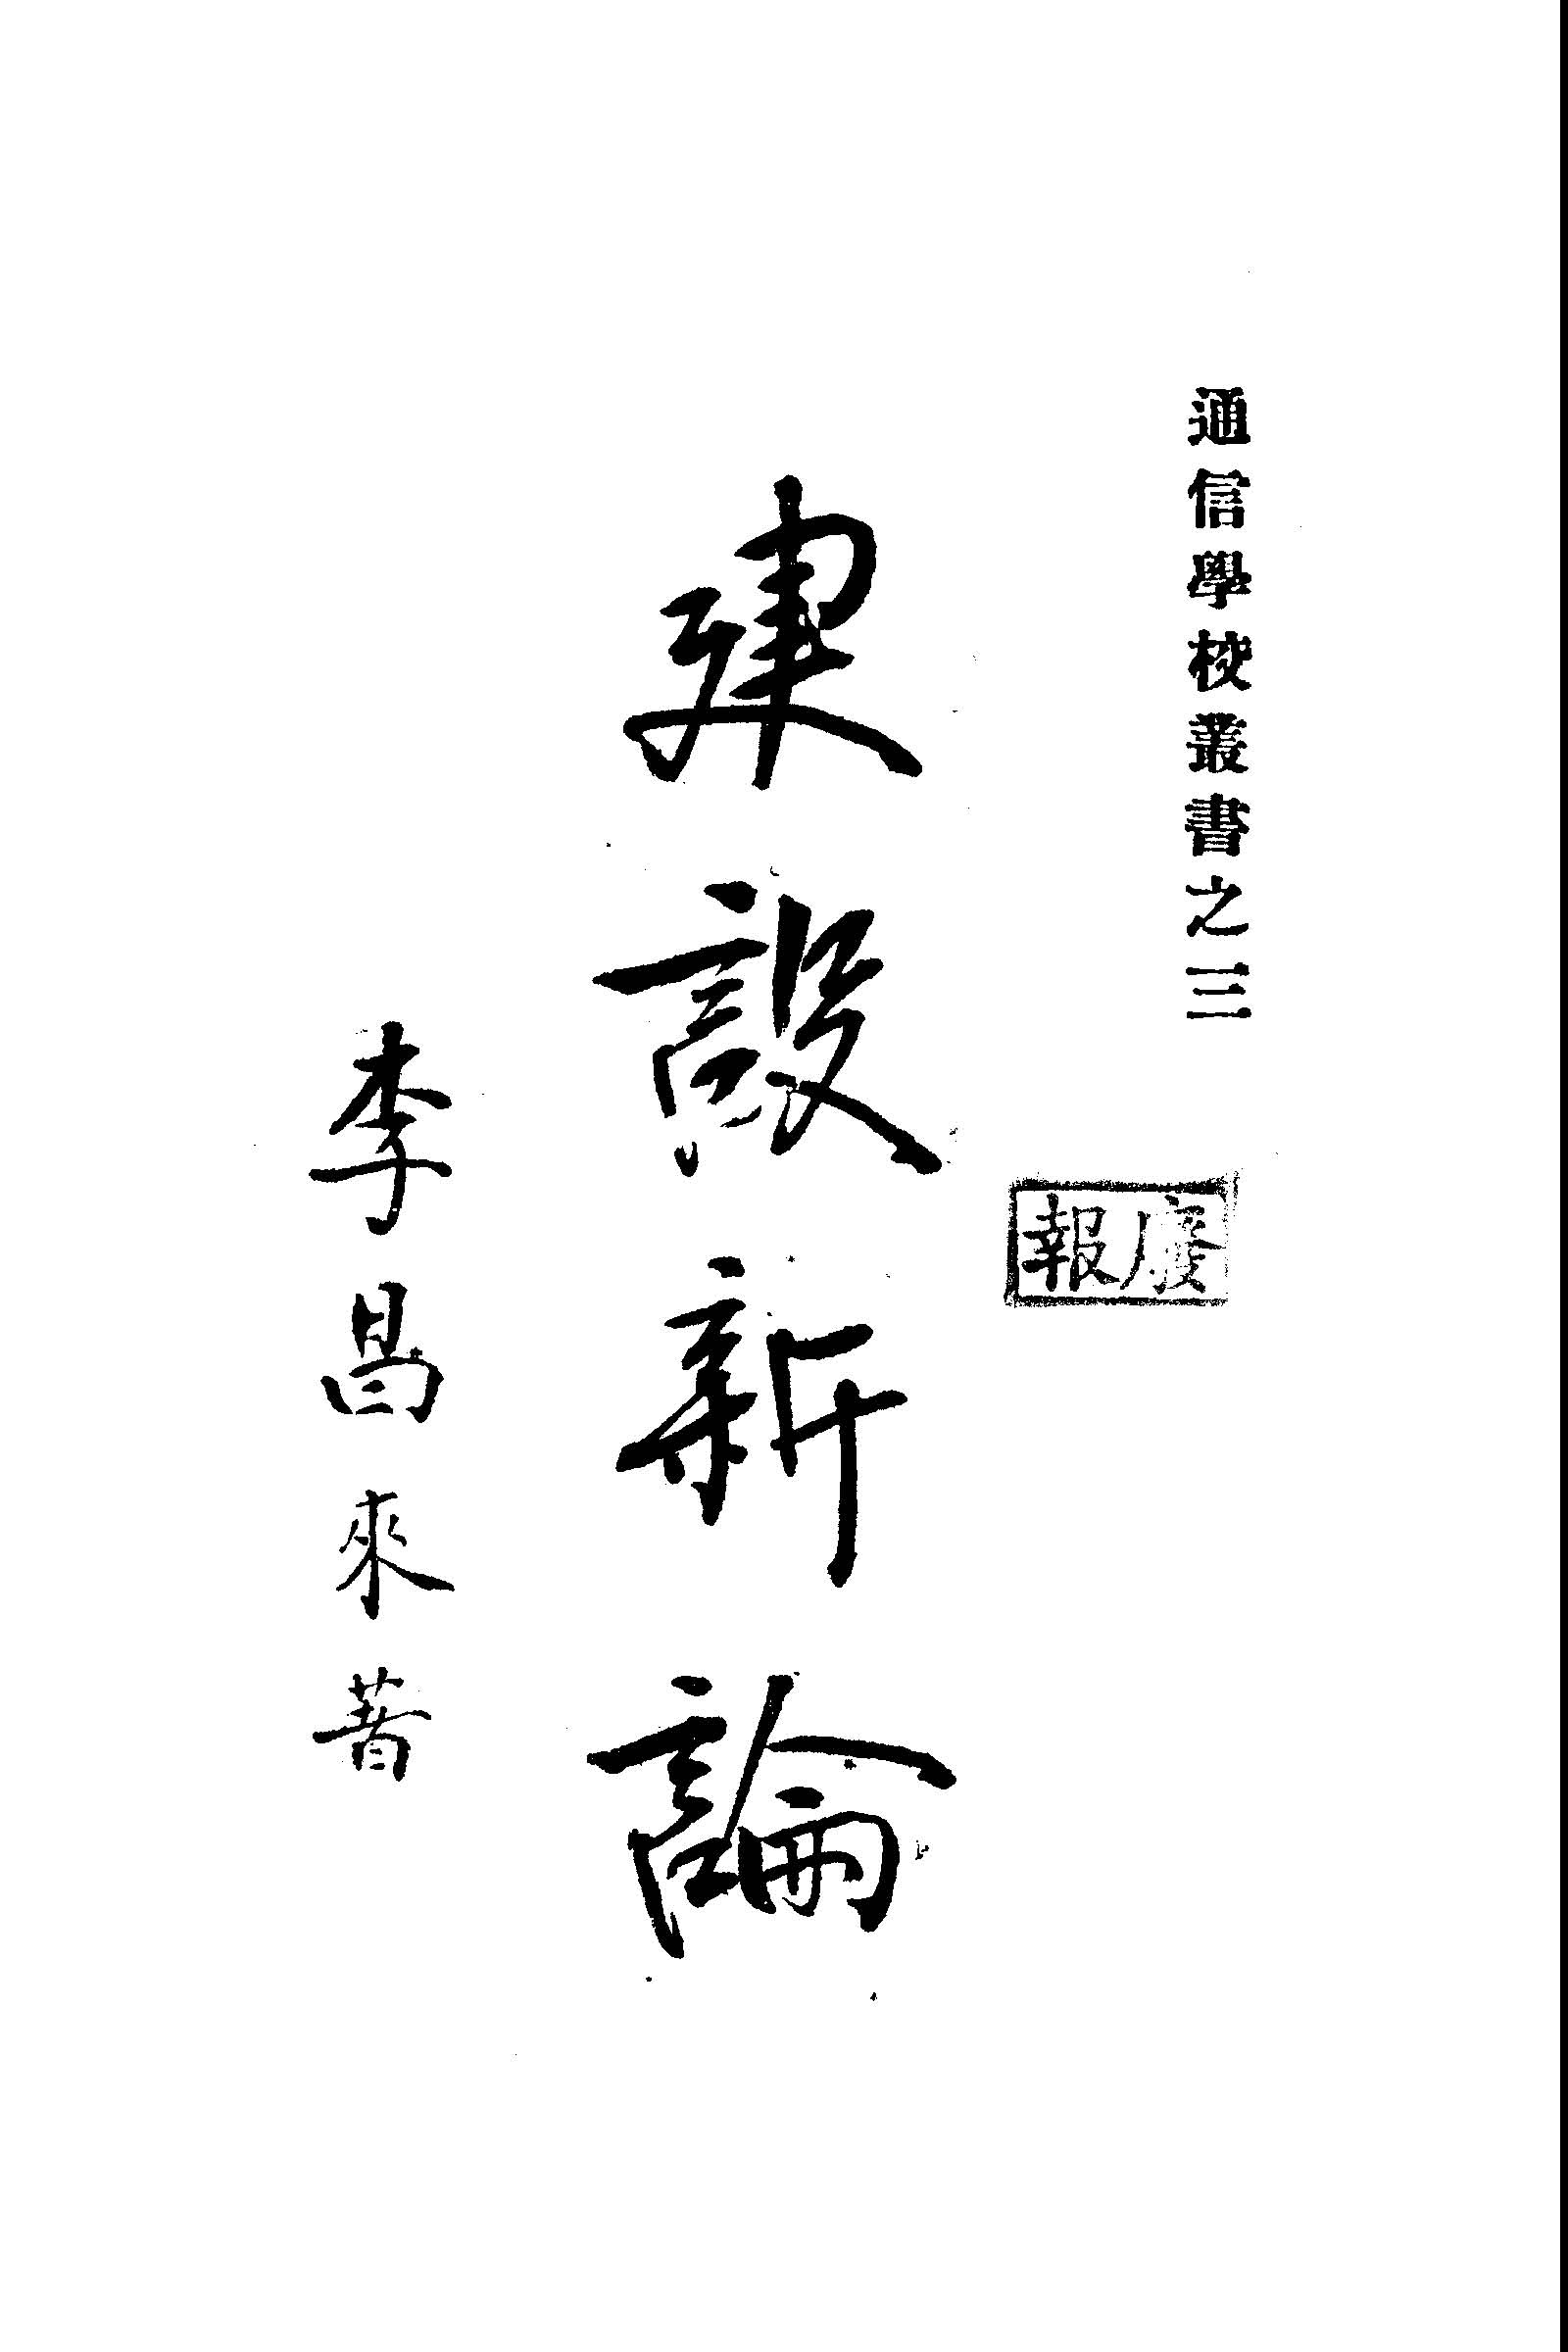 通信學校叢書之三
廢報
建設新論
李昌來著